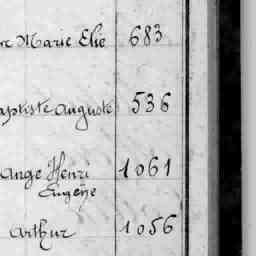 Marie Elie 683
Baptiste Auguste 536
Ange Henri 1061
Eugène
Arthur 1056